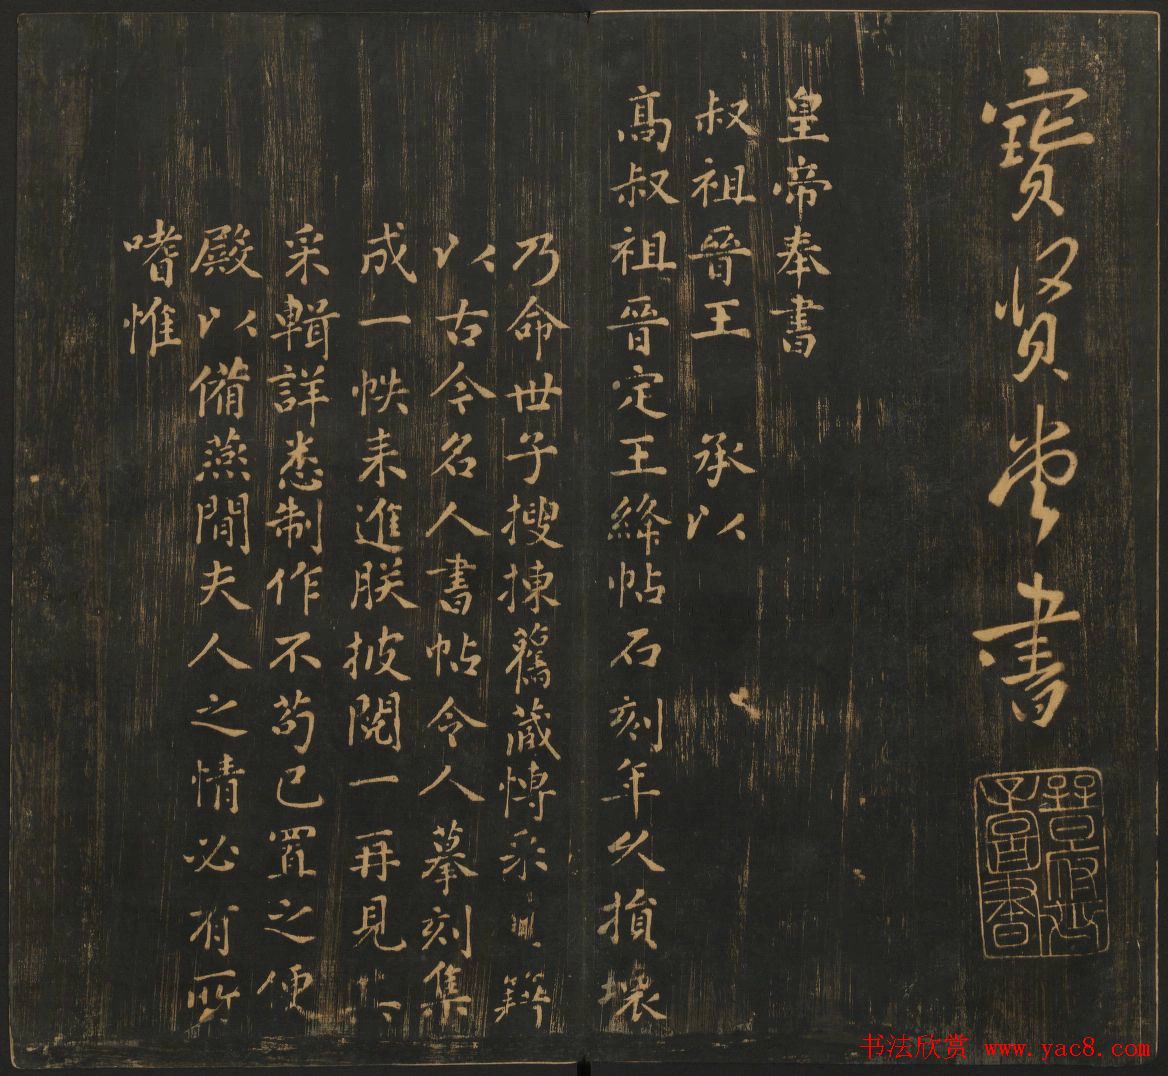 寳賢堂書
皇帝奉書
叔祖晉王　承以
高叔祖晉定王絳帖石刻年久損壞
乃命世子搜揀舊藏博采 籍
以古今名人書帖令人摹刻集
成一帙来進朕披閱一再見其
采輯詳悉制作不茍已置之便
殿以備燕閒夫人之情必有所
嗜惟
书法欣赏 www.yac8.com